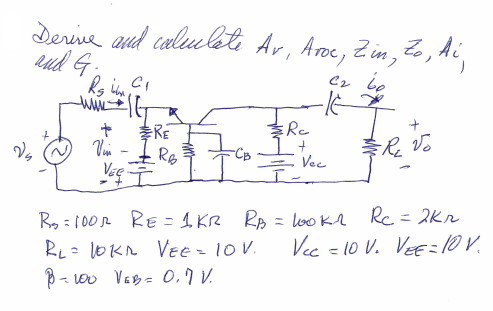 Derive and calculate Av, Avoc, Zin, Zo, Ai,
and G.
Rs iin C1 C2 io
+ RE RB CB RC + RL + Vo -
Vs + - Vin - VEE - + Vcc -
Rs = 100Ω RE = 1KΩ RB = 100KΩ RC = 2KΩ
RL = 10KΩ VEE = 10V. Vcc = 10 V. VEE = 10 V.
β = 100 VEB = 0.7 V.